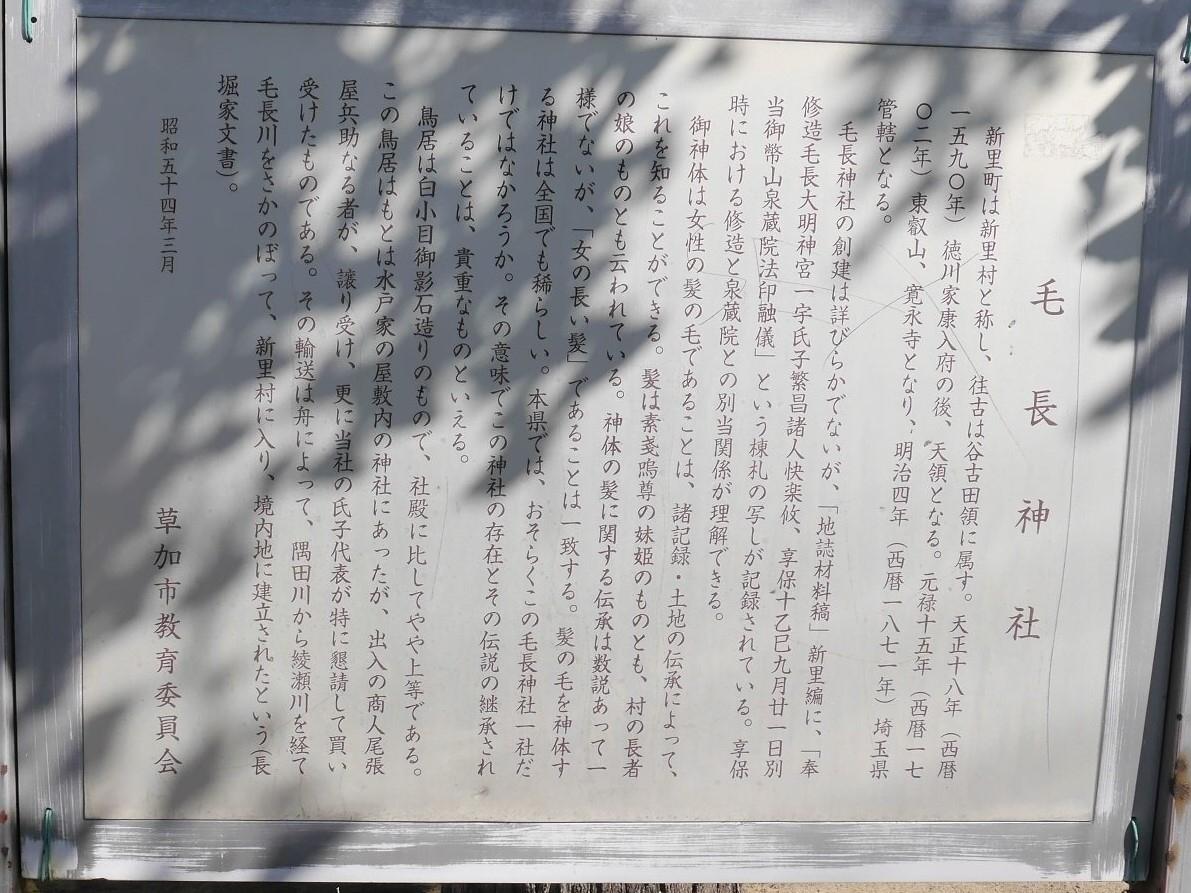 毛長神社
新里町は新里村と称し、往古は谷古田領に属す。天正十八年（西暦
一五九〇年）徳川家康入府の後、天領となる。元禄十五年（西暦一七
〇二年）東叡山、寛永寺となり、明治四年（西暦一八七一年）埼玉県
管轄となる。
毛長神社の創建は詳びらかでないが、「地誌材料稿」新里編に、「奉
修造毛長大明神宮一宇氏子繁昌諸人快楽攸、享保十乙巳九月廿一日別
当御幣山泉蔵院法印融儀」という棟札の写しが記録されている。享保
時における修造と泉蔵院との別当関係が理解できる。
御神体は女性の髪の毛であることは、諸記録・土地の伝承によって、
これを知ることができる。髪は素戔嗚尊の妹姫のものとも、村の長者
の娘のものとも云われている。神体の髪に関する伝承は数説あって一
様でないが、「女の長い髪」であることは一致する。髪の毛を神体す
る神社は全国でも稀らしい。本県では、おそらくこの毛長神社一社だ
けではなかろうか。その意味でこの神社の存在とその伝説の継承され
ていることは、貴重なものといえる。
鳥居は白小目御影石造りのもので、社殿に比してやや上等である。
この鳥居はもとは水戸家の屋敷内の神社にあったが、出入の商人尾張
屋兵助なる者が、譲り受け、更に当社の氏子代表が特に懇請して買い
受けたものである。その輸送は舟によって、隅田川から綾瀬川を経て
毛長川をさかのぼって、新里村に入り、境内地に建立されたという（長
堀家文書）。
昭和五十四年三月
草加市教育委員会